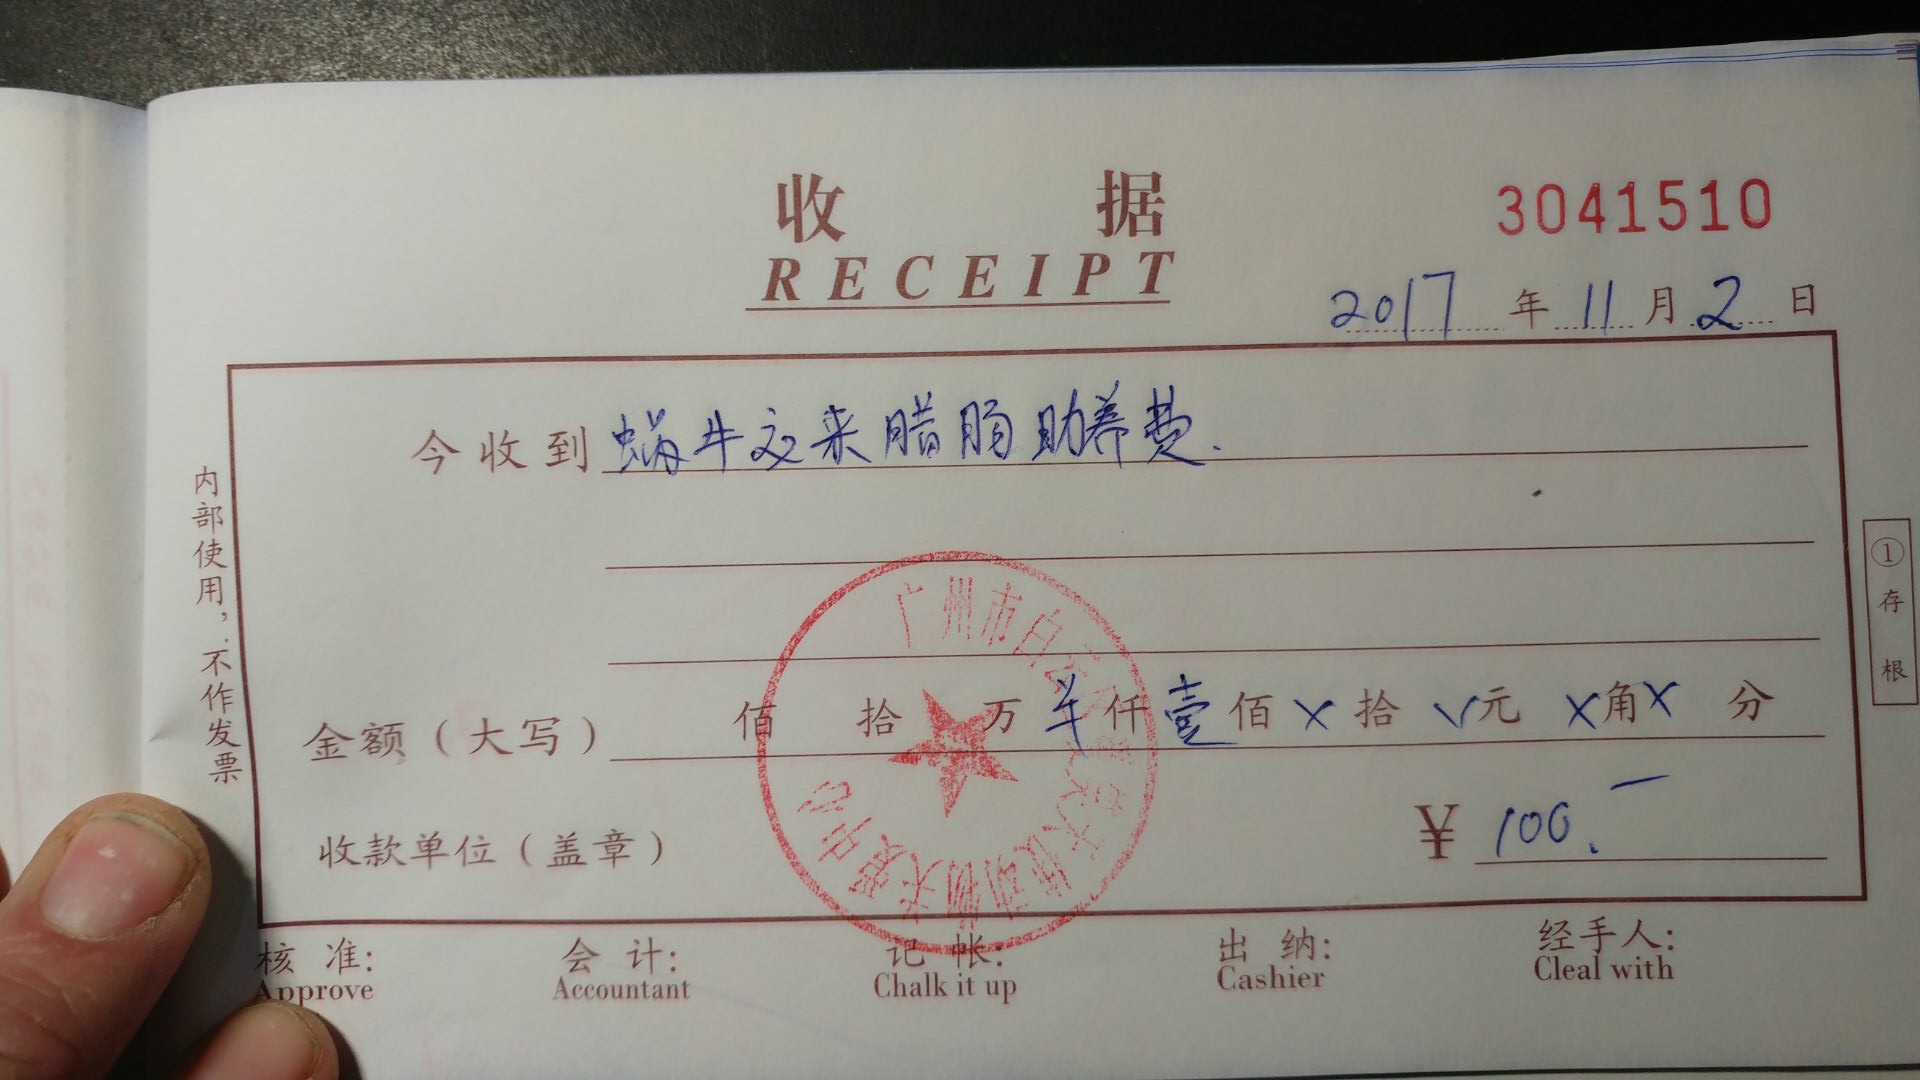 收据
RECEIPT
3041510
2017年11月2日
今收到蜗牛交来腊肠助养费.
金额(大写) 佰 拾 万 仟壹佰X拾 元X角X分
收款单位(盖章) ¥100.
核准: 会计: 记帐: 出纳: 经手人:
Approve Accountant Chalk it up Cashier Cleal with
内部使用,不作发票
①存根
广州市白云
动物关爱中心